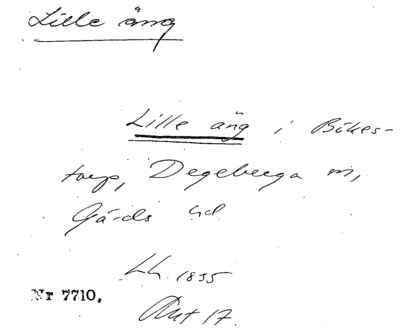 Lille äng
Lille äng i Bökes-
torp, Degeberga sn,
Gärds hd
Lh. 1835
Nr 7710.
Akt 17.